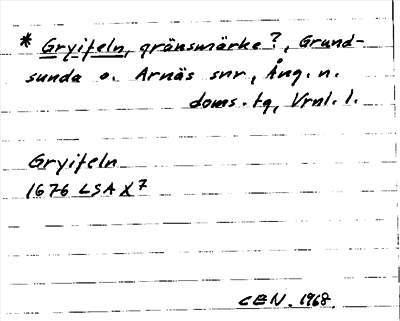 * Gryifeln, gränsmärke?, Grund-
sunda o. Arnäs snr, Ång. n.
doms. tg, Vrnl. l.
Gryifeln
1676 LSA X7
CEN. 1968.